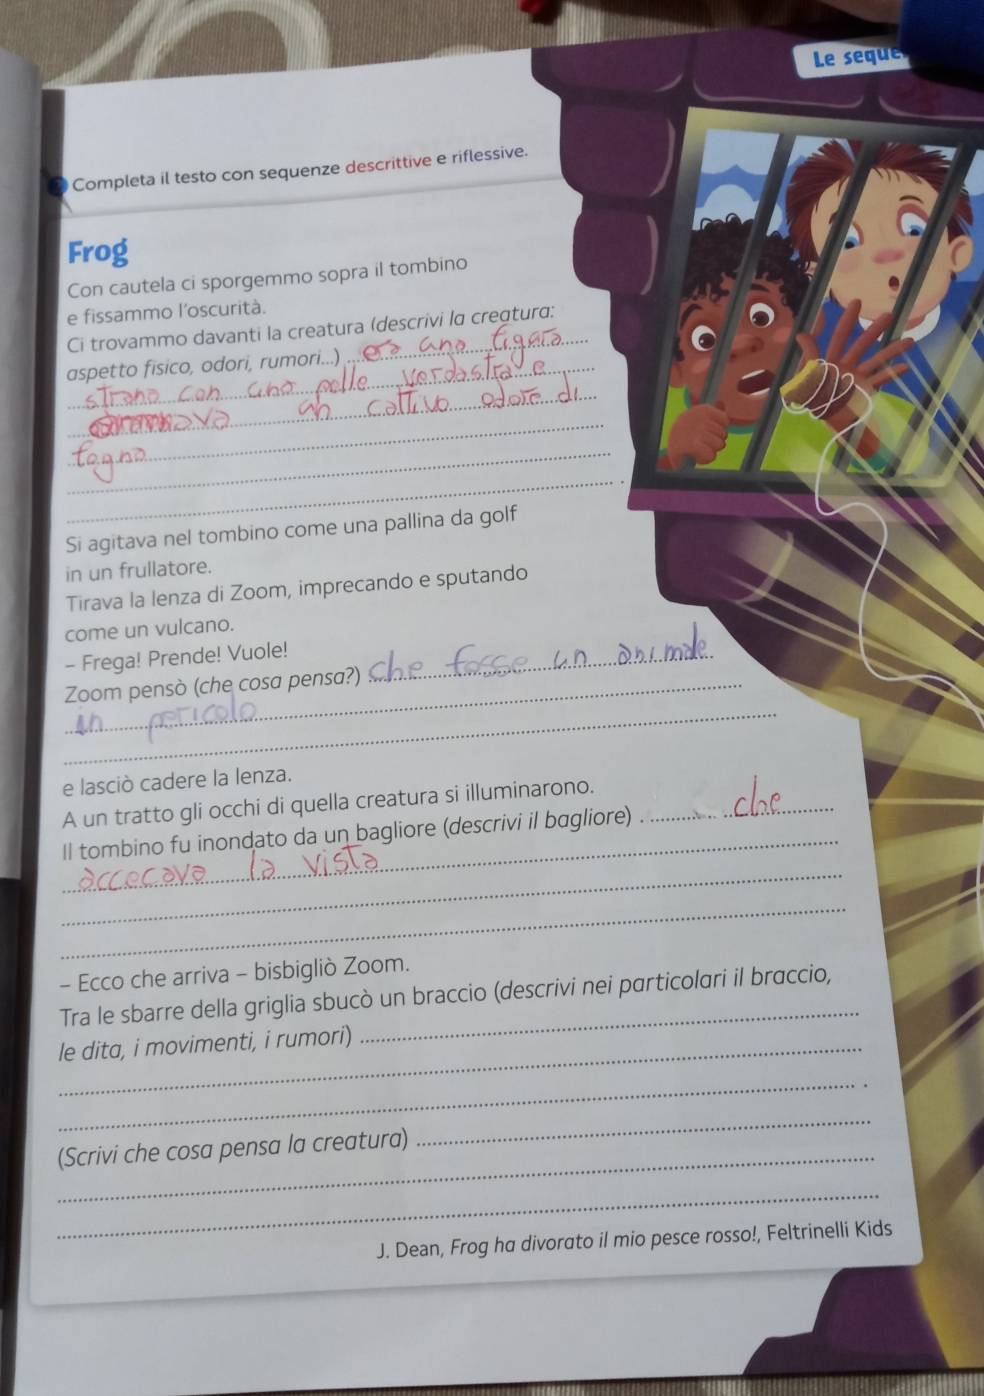 Le seque
Completa il testo con sequenze descrittive e riflessive.
Frog
Con cautela ci sporgemmo sopra il tombino
e fissammo l'oscurità.
Ci trovammo davanti la creatura (descrivi la creatura:
aspetto fisico, odori, rumori...) era una figara
strana con una pelle verdastra e
un cattivo odore di
fogna
Si agitava nel tombino come una pallina da golf
in un frullatore.
Tirava la lenza di Zoom, imprecando e sputando
come un vulcano.
– Frega! Prende! Vuole!
Zoom pensò (che cosa pensa?) che fosse un animale
in pericolo
e lasciò cadere la lenza.
A un tratto gli occhi di quella creatura si illuminarono.
Il tombino fu inondato da un bagliore (descrivi il bagliore) che
accecava la vista
– Ecco che arriva – bisbigliò Zoom.
Tra le sbarre della griglia sbucò un braccio (descrivi nei particolari il braccio,
le dita, i movimenti, i rumori)
(Scrivi che cosa pensa la creatura)
J. Dean, Frog ha divorato il mio pesce rosso!, Feltrinelli Kids